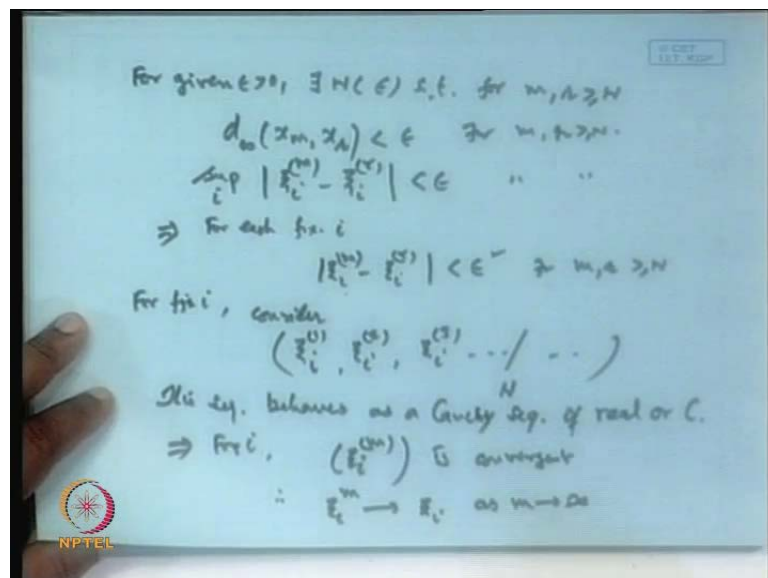 © CET
I.I.T. KGP
For given ε>0, ∃ N(ε) s.t. for m, r ≥ N
d∞(xm, xr) < ε for m, r ≥ N.
sup i | ξi^(m) - ξi^(r) | < ε " "
⇒ For each fix. i
|ξi^(m) - ξi^(r)| < ε for m, r ≥ N
For fix i, consider
(ξi^(1), ξi^(2), ξi^(3) ... / ...)
N
This seq. behaves as a Cauchy seq. of real or C.
⇒ Fix i, (ξi^(m)) is convergent
∴ ξi^m → ξi as m → ∞
NPTEL